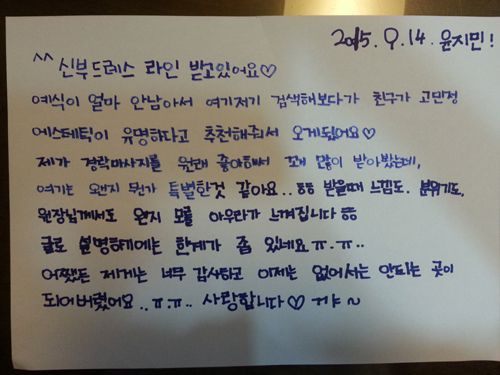 2015. 9. 14. 윤지민!
^^ 신부드레스 라인 받고있어요♡
예식이 얼마 안남아서 여기저기 검색해보다가 친구가 고민정
에스테틱이 유명하다고 추천해줘서 오게됬어요♡
제가 경락마사지를 원래 좋아해서 꽤 많이 받아봤는데,
여기는 왠지 뭔가 특별한것 같아요.. ㅎㅎ 받을때 느낌도. 분위기도.
원장님께서도 왠지 모를 아우라가 느껴집니다 ㅎㅎ
글로 설명하기에는 한계가 좀 있네요 ㅠ.ㅠ..
어쨌든 제게는 너무 감사하고 이제는 없어서는 안되는 곳이
되어버렸어요..ㅠ.ㅠ.. 사랑합니다♡ 꺄~